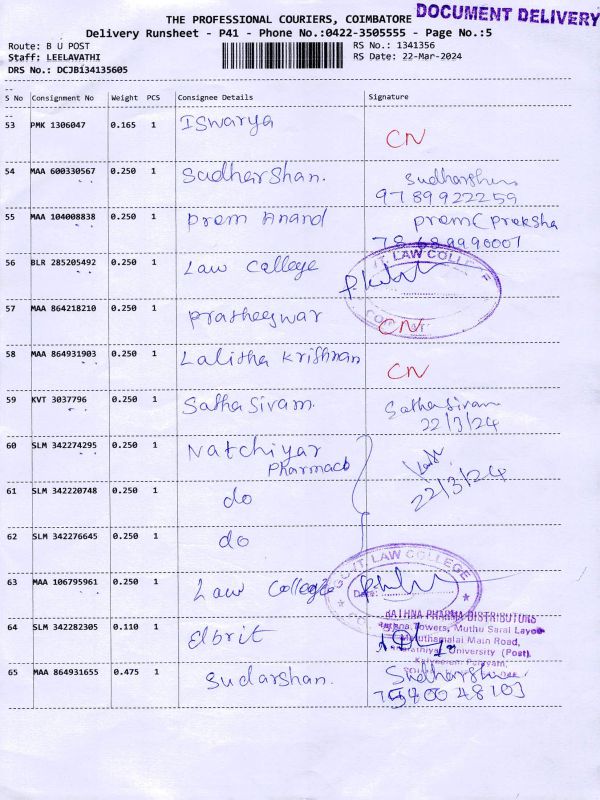 DOCUMENT DELIVERY
THE PROFESSIONAL COURIERS, COIMBATORE
Delivery Runsheet - P41 - Phone No.:0422-3505555 - Page No.:5
Route: B U POST RS No.: 1341356
Staff: LEELAVATHI RS Date: 22-Mar-2024
DRS No.: DCJBi34135605
S No Consignment No Weight PCS Consignee Details Signature
53 PMK 1306047 0.165 1 Iswarya CN
54 MAA 600330567 0.250 1 Sudharshan. Sudharshan
9789922259
55 MAA 104008838 0.250 1 Prem Anand Prem (Preksha
56 BLR 285205492 0.250 1 Law College
GOVT LAW COLLEGE
57 MAA 864218210 0.250 1 Pratheeswar CN
58 MAA 864931903 0.250 1 Lalitha Krishnan CN
59 KVT 3037796 0.250 1 Sathasivam. Sathasivam
22/3/24
60 SLM 342274295 0.250 1 Natchiyar
Pharmacb
22/3/24
61 SLM 342220748 0.250 1 do
62 SLM 342276645 0.250 1 do
GOVT LAW COLLEGE
63 MAA 106795961 0.250 1 Law College Date:
RATHNA PHARMA DISTRIBUTORS
64 SLM 342282305 0.110 1 Elbrit
Towers, Muthu Sarai Layout
Maruthamalai Main Road,
Bharathiyar University (Post),
65 MAA 864931655 0.475 1 Sudarshan. Sudharshan